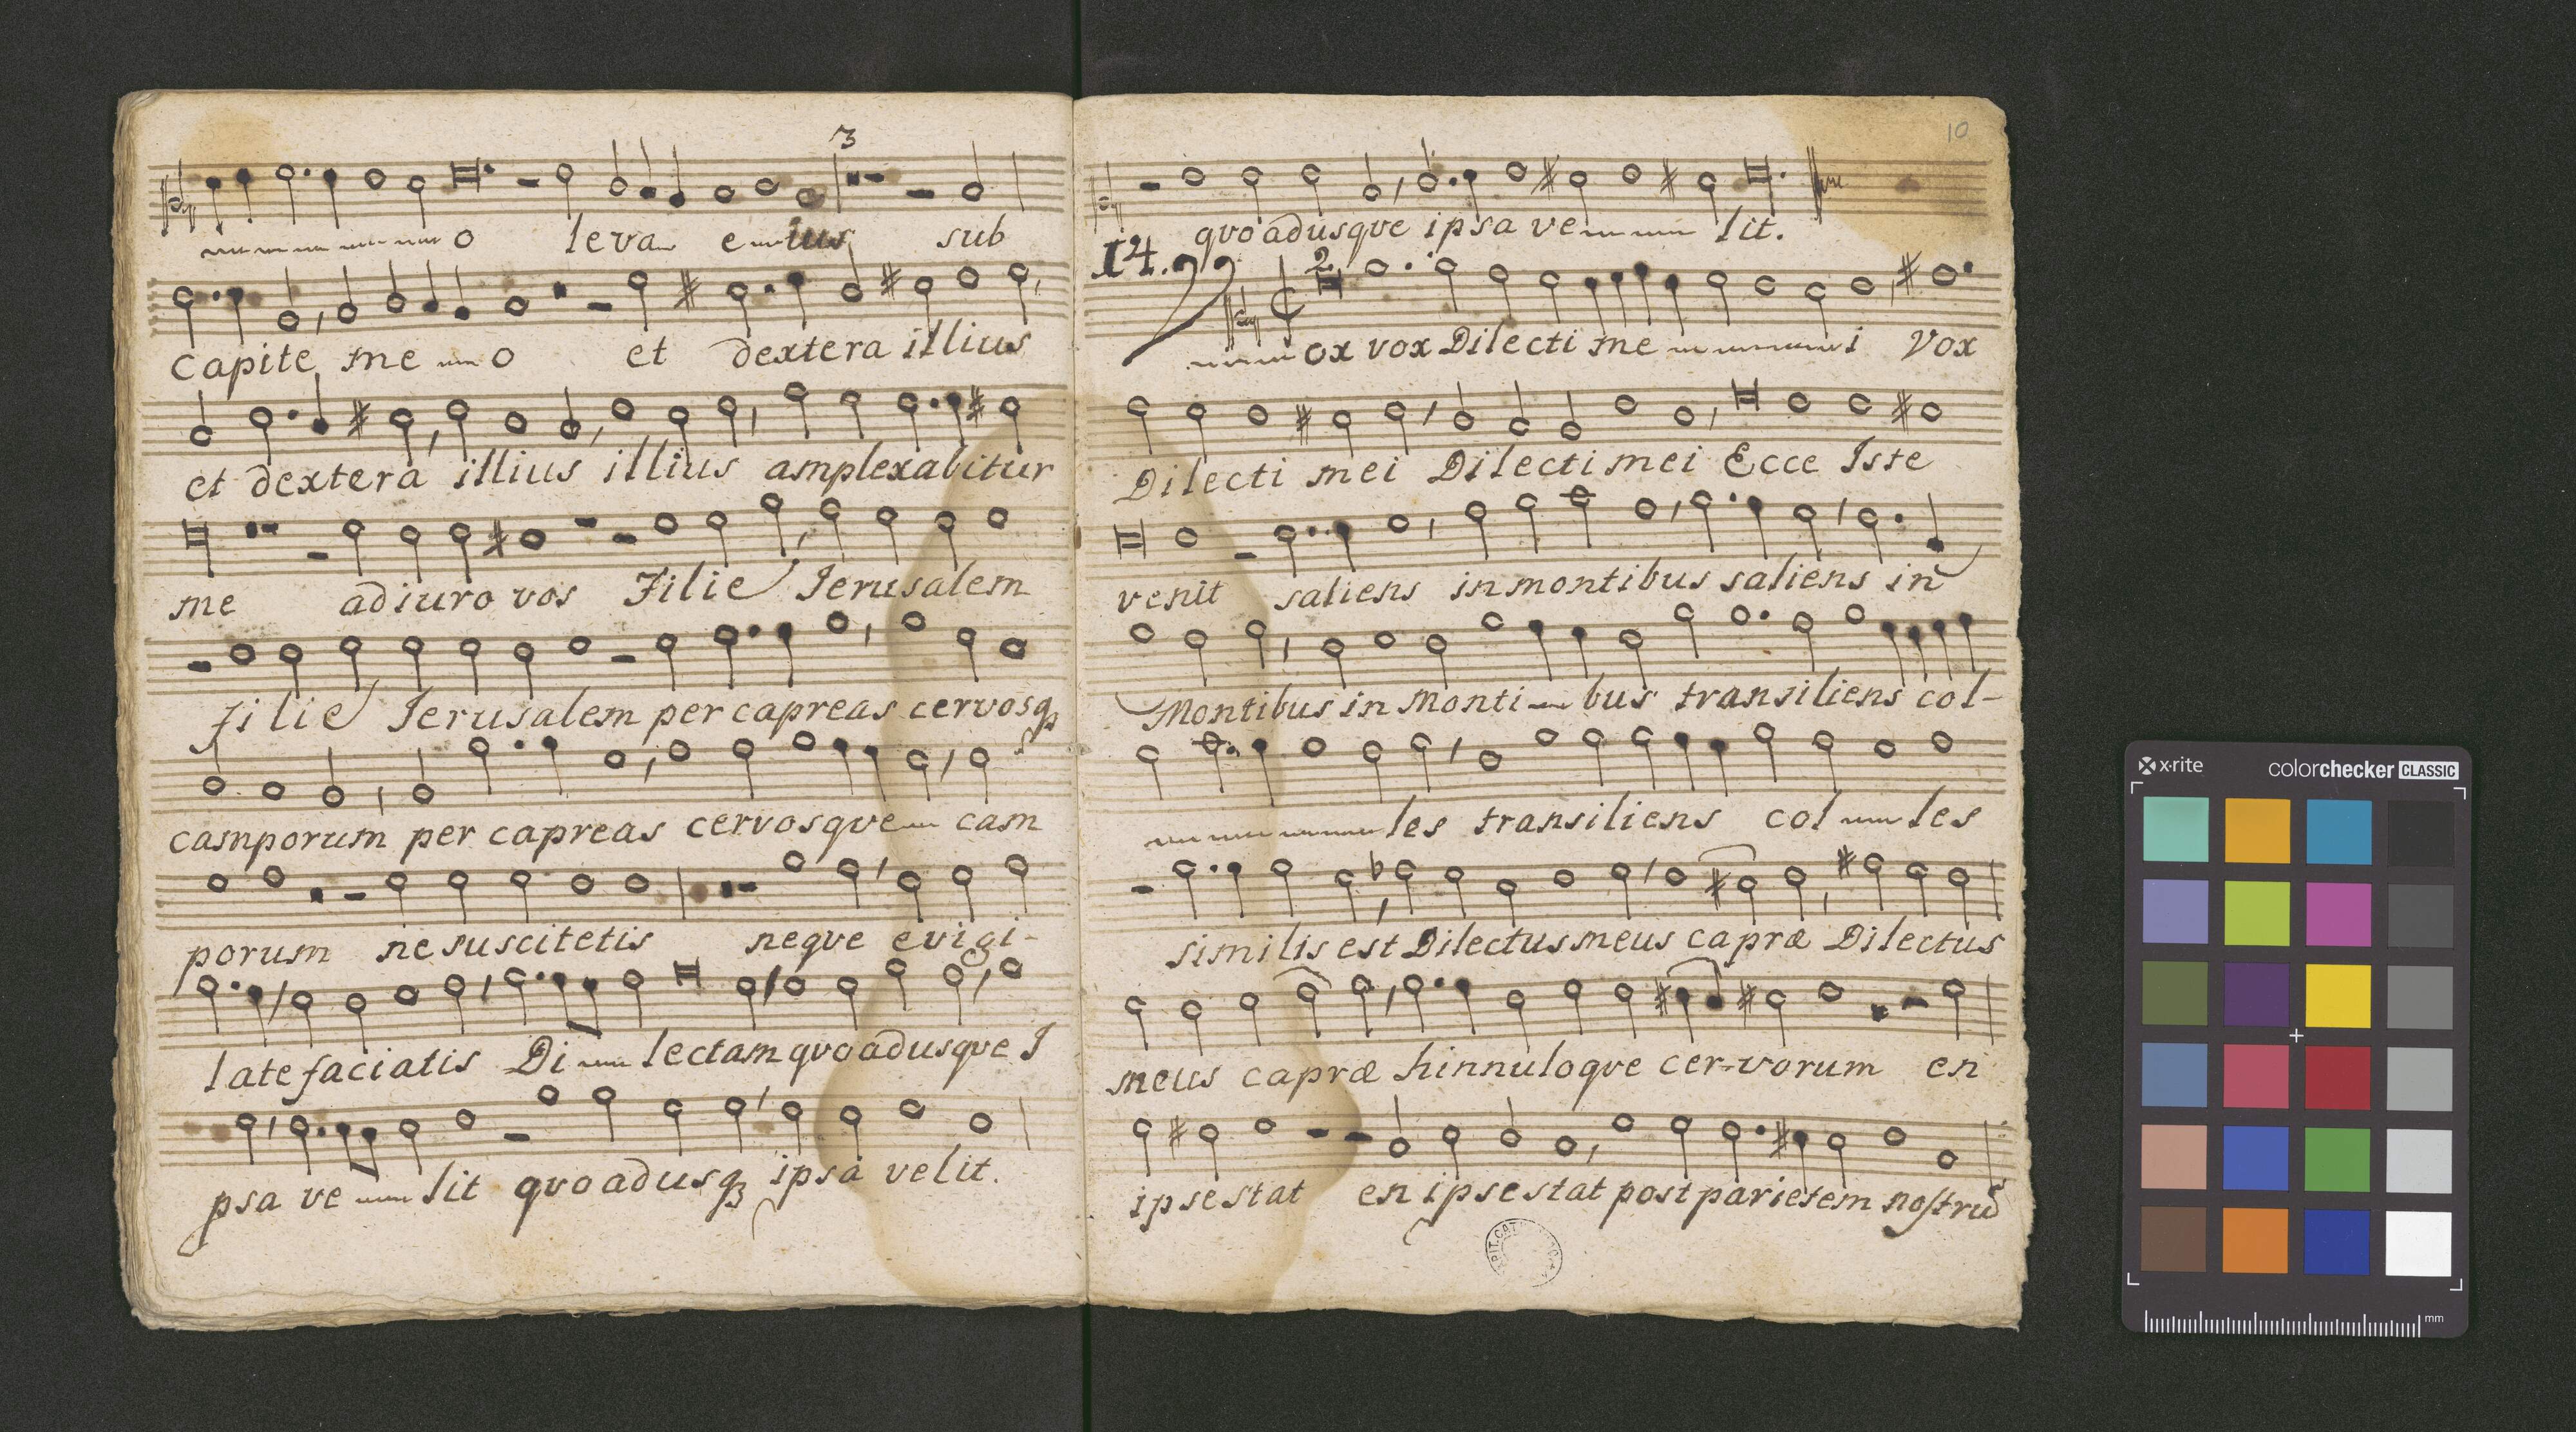 3
o leva eius sub
capite me o et dextera illius
et dextera illius illius amplexabitur
me adiuro vos Filie Ierusalem
Filie Ierusalem per capreas cervosq
camporum per capreas cervosque cam
porum ne suscitetis neque evigi-
late faciatis Di lectam quoadusque I
psa ve lit quoadusq ipsa velit.
10
quoadusque ipsa ve lit.
14. V 2
ox vox Dilecti me i Vox
Dilecti mei Dilecti mei Ecce Iste
venit saliens in montibus saliens in
Montibus in Monti bus transiliens col-
les transiliens col les
similis est Dilectus meus capræ Dilectus
meus capræ hinnuloque cer-vorum en
ipse stat en ipse stat post parietem nostrũ
x-rite colorchecker CLASSIC
mm